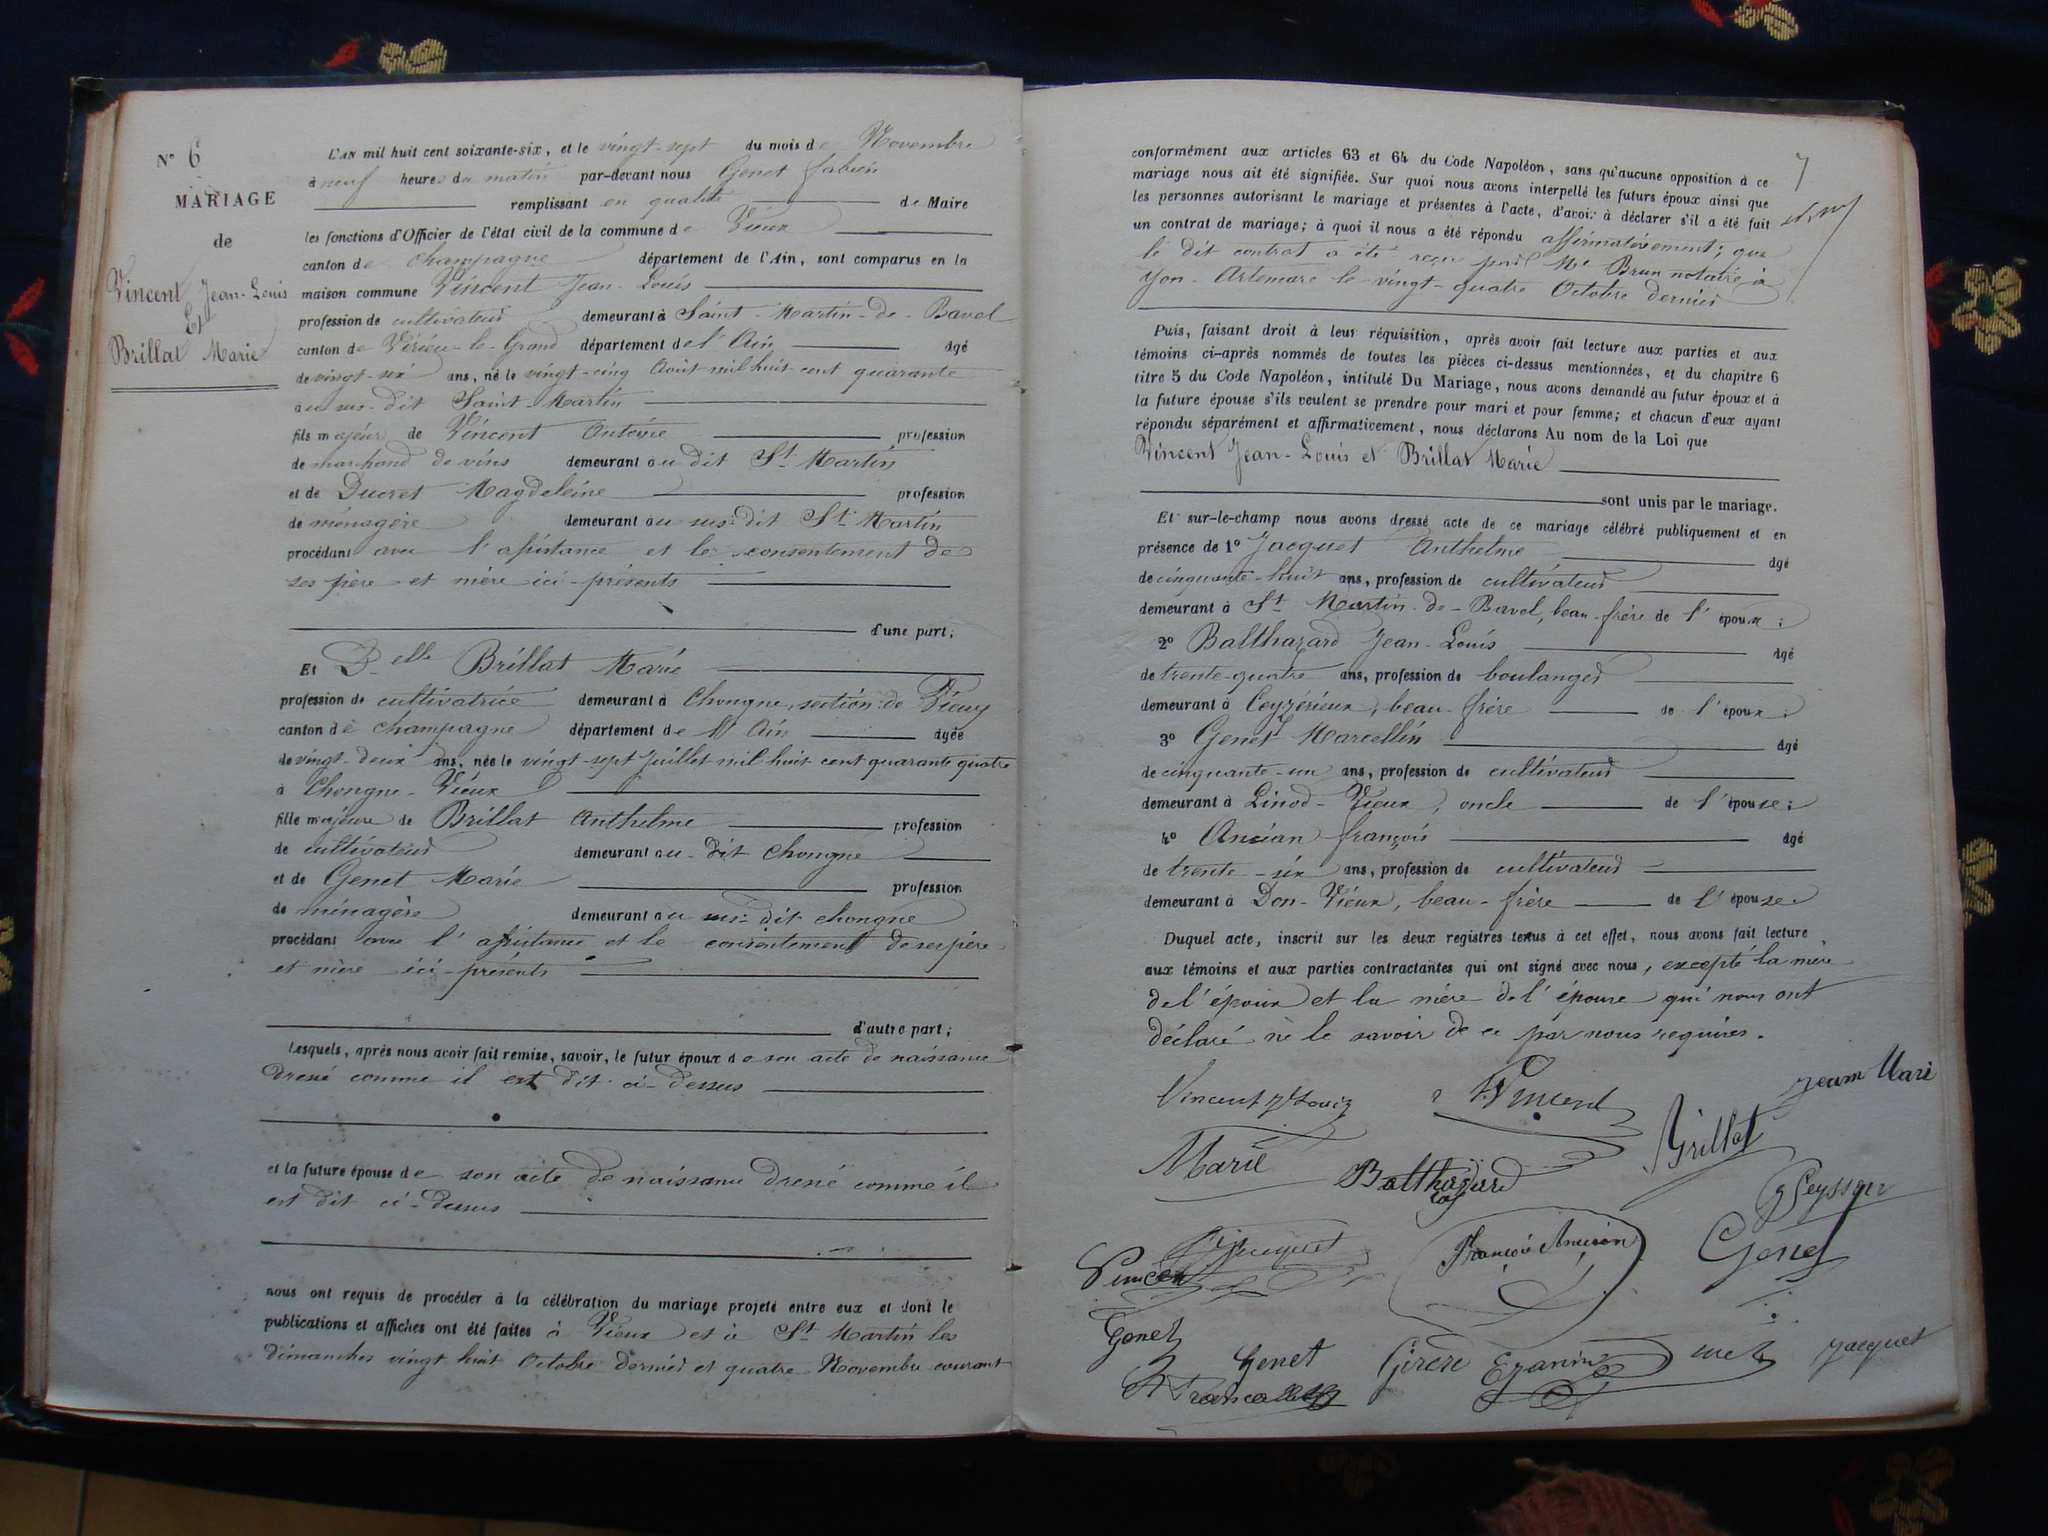 N° 6
MARIAGE
de
Vincent Jean-Louis
Et
Brillat Marie
L'AN mil huit cent soixante-six, et le vingt-sept du mois de Novembre
à neuf heures du matin par-devant nous Genet fabien
remplissant en qualité de Maire
les fonctions d'Officier de l'état civil de la commune de Vieux
canton de Champagne département de l'Ain, sont comparus en la
maison commune Vincent Jean-Louis
profession de cultivateur demeurant à Saint-Martin-de-Bavel
canton de Virieu-le-Grand département de l'Ain âgé
de vingt-six ans, né le vingt-cinq Août mil huit cent quarante
au sus-dit Saint-Martin
fils majeur de Vincent Antoine profession
de marchand de vins demeurant au dit St Martin
et de Ducret Magdeleine profession
de ménagère demeurant au sus-dit St Martin
procédant avec l'assistance et le consentement de
ses père et mère ici-présents
d'une part;
Et Delle Brillat Marie
profession de cultivatrice demeurant à Chongne, section de Vieux
canton de Champagne département de l'Ain âgée
de vingt-deux ans, née le vingt-sept Juillet mil huit cent quarante quatre
à Chongne-Vieux
fille majeure de Brillat Anthelme profession
de cultivateur demeurant au-dit Chongne
et de Genet Marie profession
de ménagère demeurant au sus-dit chongne
procédant avec l'assistance et le consentement de ses père
et mère ici-présents
d'autre part;
Lesquels, après nous avoir fait remise, savoir, le futur époux de son acte de naissance
dressé comme il est dit ci-dessus
et la future épouse de son acte de naissance dressé comme il
est dit ci-dessus
nous ont requis de procéder à la célébration du mariage projeté entre eux et dont le
publications et affiches ont été faites à Vieux et à St Martin les
dimanches vingt huit Octobre dernier et quatre Novembre courant
7
conformément aux articles 63 et 64 du Code Napoléon, sans qu'aucune opposition à ce
mariage nous ait été signifiée. Sur quoi nous avons interpellé les futurs époux ainsi que
les personnes autorisant le mariage et présentes à l'acte, d'avoir à déclarer s'il a été fait
un contrat de mariage; à quoi il nous a été répondu affirmativement; que
le dit contrat a été reçu par Me Brun notaire à
Yon-Artemare le vingt-quatre Octobre dernier
Puis, faisant droit à leur réquisition, après avoir fait lecture aux parties et aux
témoins ci-après nommés de toutes les pièces ci-dessus mentionnées, et du chapitre 6
titre 5 du Code Napoléon, intitulé Du Mariage, nous avons demandé au futur époux et à
la future épouse s'ils veulent se prendre pour mari et pour femme; et chacun d'eux ayant
répondu séparément et affirmativement, nous déclarons Au nom de la Loi que
Vincent Jean-Louis et Brillat Marie
sont unis par le mariage.
Et sur-le-champ nous avons dressé acte de ce mariage célébré publiquement et en
présence de 1° Jacquet Anthelme âgé
de cinquante-huit ans, profession de cultivateur
demeurant à St Martin-de-Bavel, beau-frère de l'époux;
2° Balthazard Jean-Louis âgé
de trente-quatre ans, profession de boulanger
demeurant à Ceyzérieux, beau-frère de l'époux;
3° Genet Marcellin âgé
de cinquante-un ans, profession de cultivateur
demeurant à Linod-Vieux, oncle de l'épouse;
4° Ancian françois âgé
de trente-six ans, profession de cultivateur
demeurant à Don-Vieux, beau-frère de l'épouse.
Duquel acte, inscrit sur les deux registres tenus à cet effet, nous avons fait lecture
aux témoins et aux parties contractantes qui ont signé avec nous, excepté la mère
de l'époux et la mère de l'épouse qui nous ont
déclaré ne le savoir de ce par nous requises.
Vincent Vincent Jean Mari
Marie Balthazard Brillat
Peysson
Jacquet François Ancian Genet
Vincent
Genet Genet Jacquet